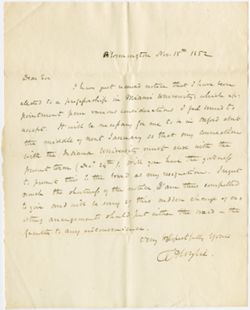 Bloomington Nov. 18th 1852
Dear Sir
I have just received notice that I have been
elected to a professorship in Miami University, which ap-
pointment from various considerations I feel inclined to
accept. It will be necessary for me to be in Oxford about
the middle of next January so that my connection
with the Indiana University must cease with the
present term (Dec 24th). Will you have the goodness
to present this to the board as my resignation. I regret
much the shortness of the notice I am thus compelled
to give and will be sorry if this sudden change of
arrangement should put either the board or the
to any inconvenience.
Very respectfully yours
T A Wylie